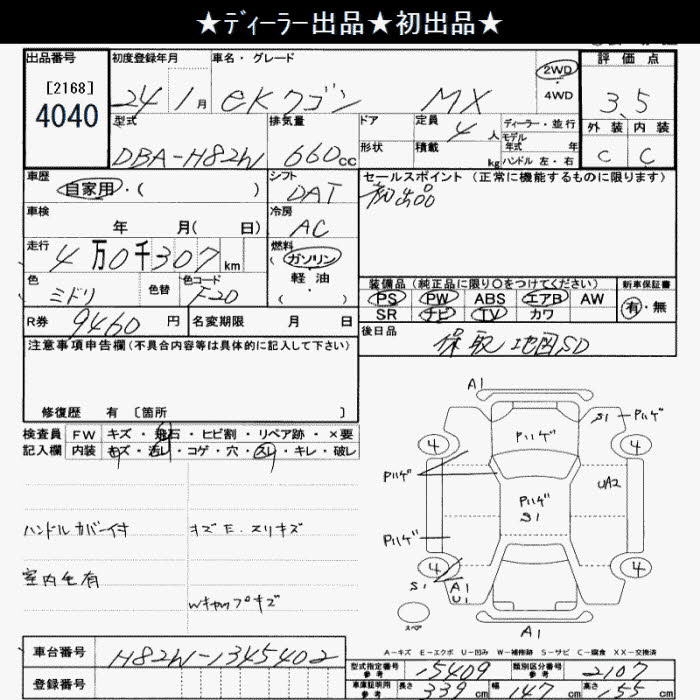 ★ディーラー出品★初出品★
出品番号 初度登録年月 車名・グレード 評価点
[2168]
4040
24年 1月 eKワゴン MX 2WD 3.5
・
4WD
型式 排気量 ドア 定員 4人 ディーラー・並行 外装 内装
モデル
年式 年
DBA-H82W 660cc 形状 積載 kg ハンドル 左・右 C C
車歴 シフト セールスポイント (正常に機能するものに限ります)
自家用・( ) DAT 初出品
車検 冷房
年 月( 日) AC
走行 燃料
4万0千307km ガソリン
・
軽油
( )
色 色替 色コード
ミドリ F20
装備品 (純正品に限り○をつけてください) 新車保証書
PS PW ABS エアB AW 有・無
SR ナビ TV カワ
R券 9460円 名変期限 月 日
後日品 保取地図SD
注意事項申告欄(不具合内容等は具体的に記入して下さい)
修復歴 有 〔箇所 〕
検査員 FW キズ・飛石・ヒビ割・リペア跡・×要
記入欄 内装 キズ・汚レ・コゲ・穴・スレ・キレ・破レ
ハンドルカバー付 キズE.スリキズ
室内毛有
Wキャップキズ
A1
S1 Pハゲ
4 Pハゲ 4
Pハゲ UA2
Pハゲ
S1
Pハゲ
4 4
S1 A1
U1
スペア
A1
A-キズ E-エクボ U-凹み W-補修跡 S-サビ C-腐食 XX-交換済
車台番号 H82W-1345402
登録番号
型式指定番号 参考 15409 類別区分番号 参考 2107
車庫証明用 参考 長さ 339cm 幅 147cm 高さ 155cm